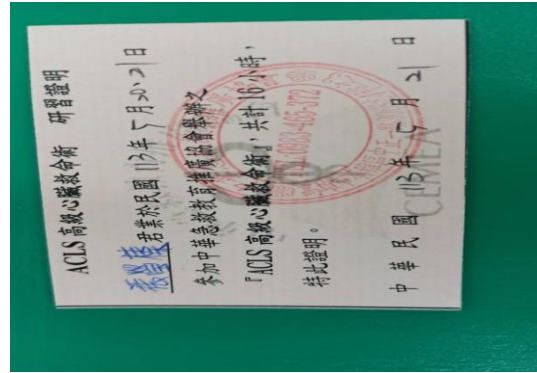 ACLS 高級心臟救命術 研習證明
君業於民國 113年 5月20、21日
參加中華急救教育推廣協會舉辦之
『ACLS 高級心臟救命術』，共計16小時，
特此證明。
中華民國 113年 5月 21日
0800-465-372
CEMEA